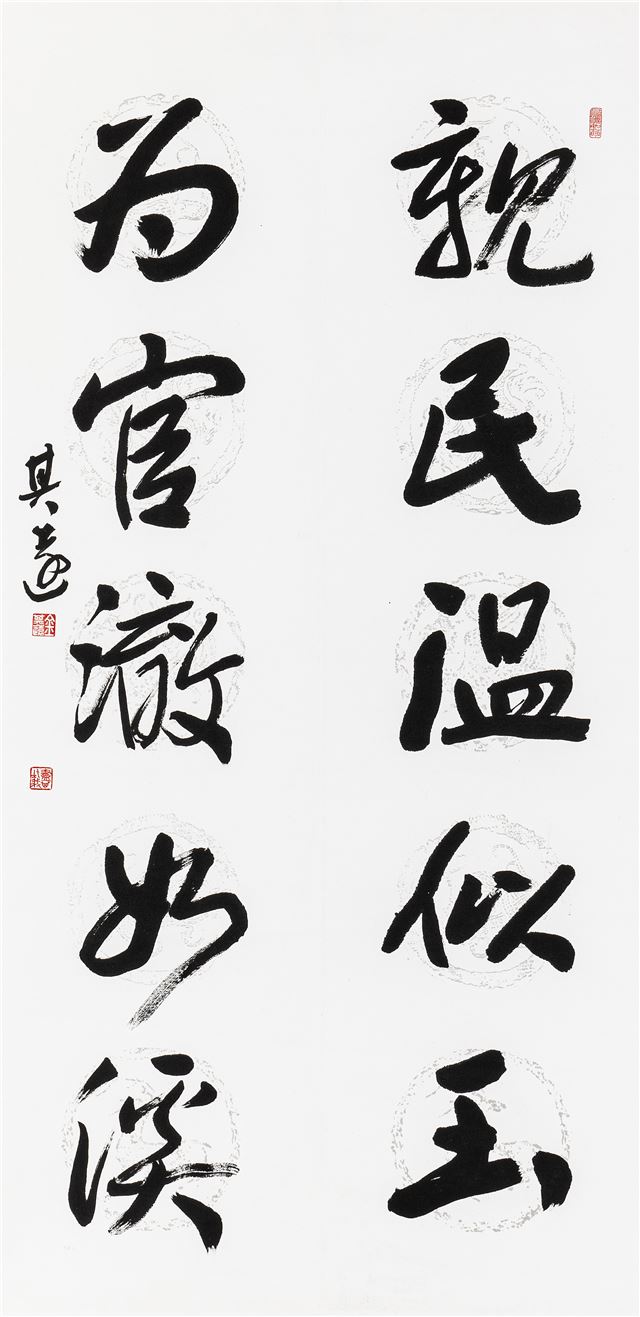 親民温似玉
为官澈如溪
其遠